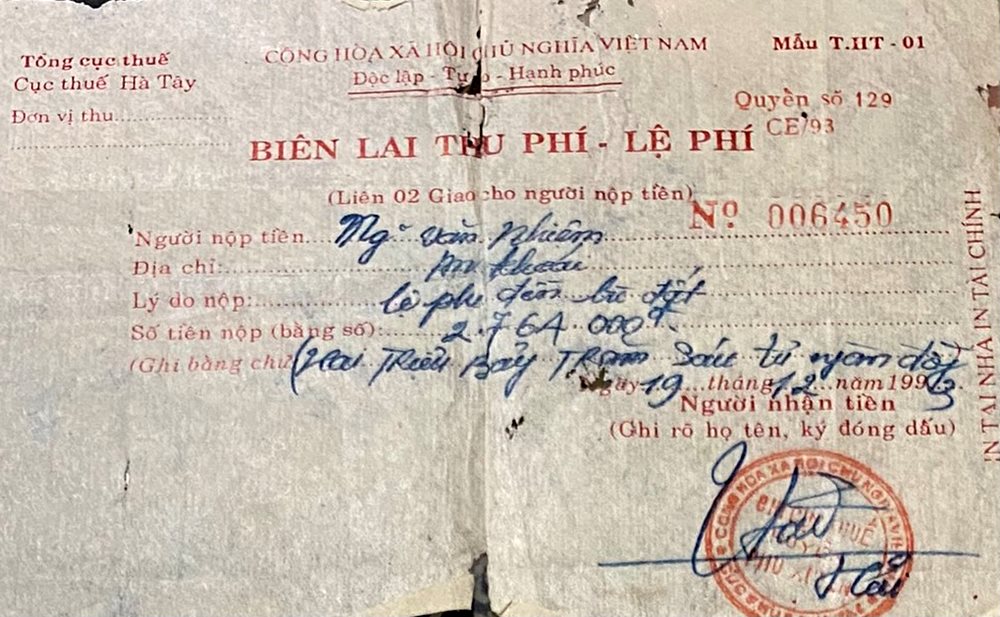 Tổng cục thuế
Cục thuế Hà Tây
Đơn vị thu
CỘNG HÒA XÃ HỘI CHỦ NGHĨA VIỆT NAM
Độc lập - Tự do - Hạnh phúc
Mẫu T.IIT - 01
Quyển số 129
CE/93
BIÊN LAI THU PHÍ - LỆ PHÍ
(Liên 02 Giao cho người nộp tiền)
Nº 006450
Người nộp tiền Ngô văn Nhiêm
Địa chỉ: An khoái
Lý do nộp: lệ phí đền bù đất
Số tiền nộp (bằng số): 2.764.000đ
(Ghi bằng chữ (Hai Triệu Bảy Trăm Sáu tư ngàn đồng
Ngày 19 tháng 12 năm 1993
Người nhận tiền
(Ghi rõ họ tên, ký đóng dấu)
IN TẠI NHÀ IN TÀI CHÍNH
CỘNG HÒA XÃ HỘI CHỦ NGHĨA VIỆT
CHI CỤC THUẾ
HUYỆN
PHÚ XUYÊN
Hải